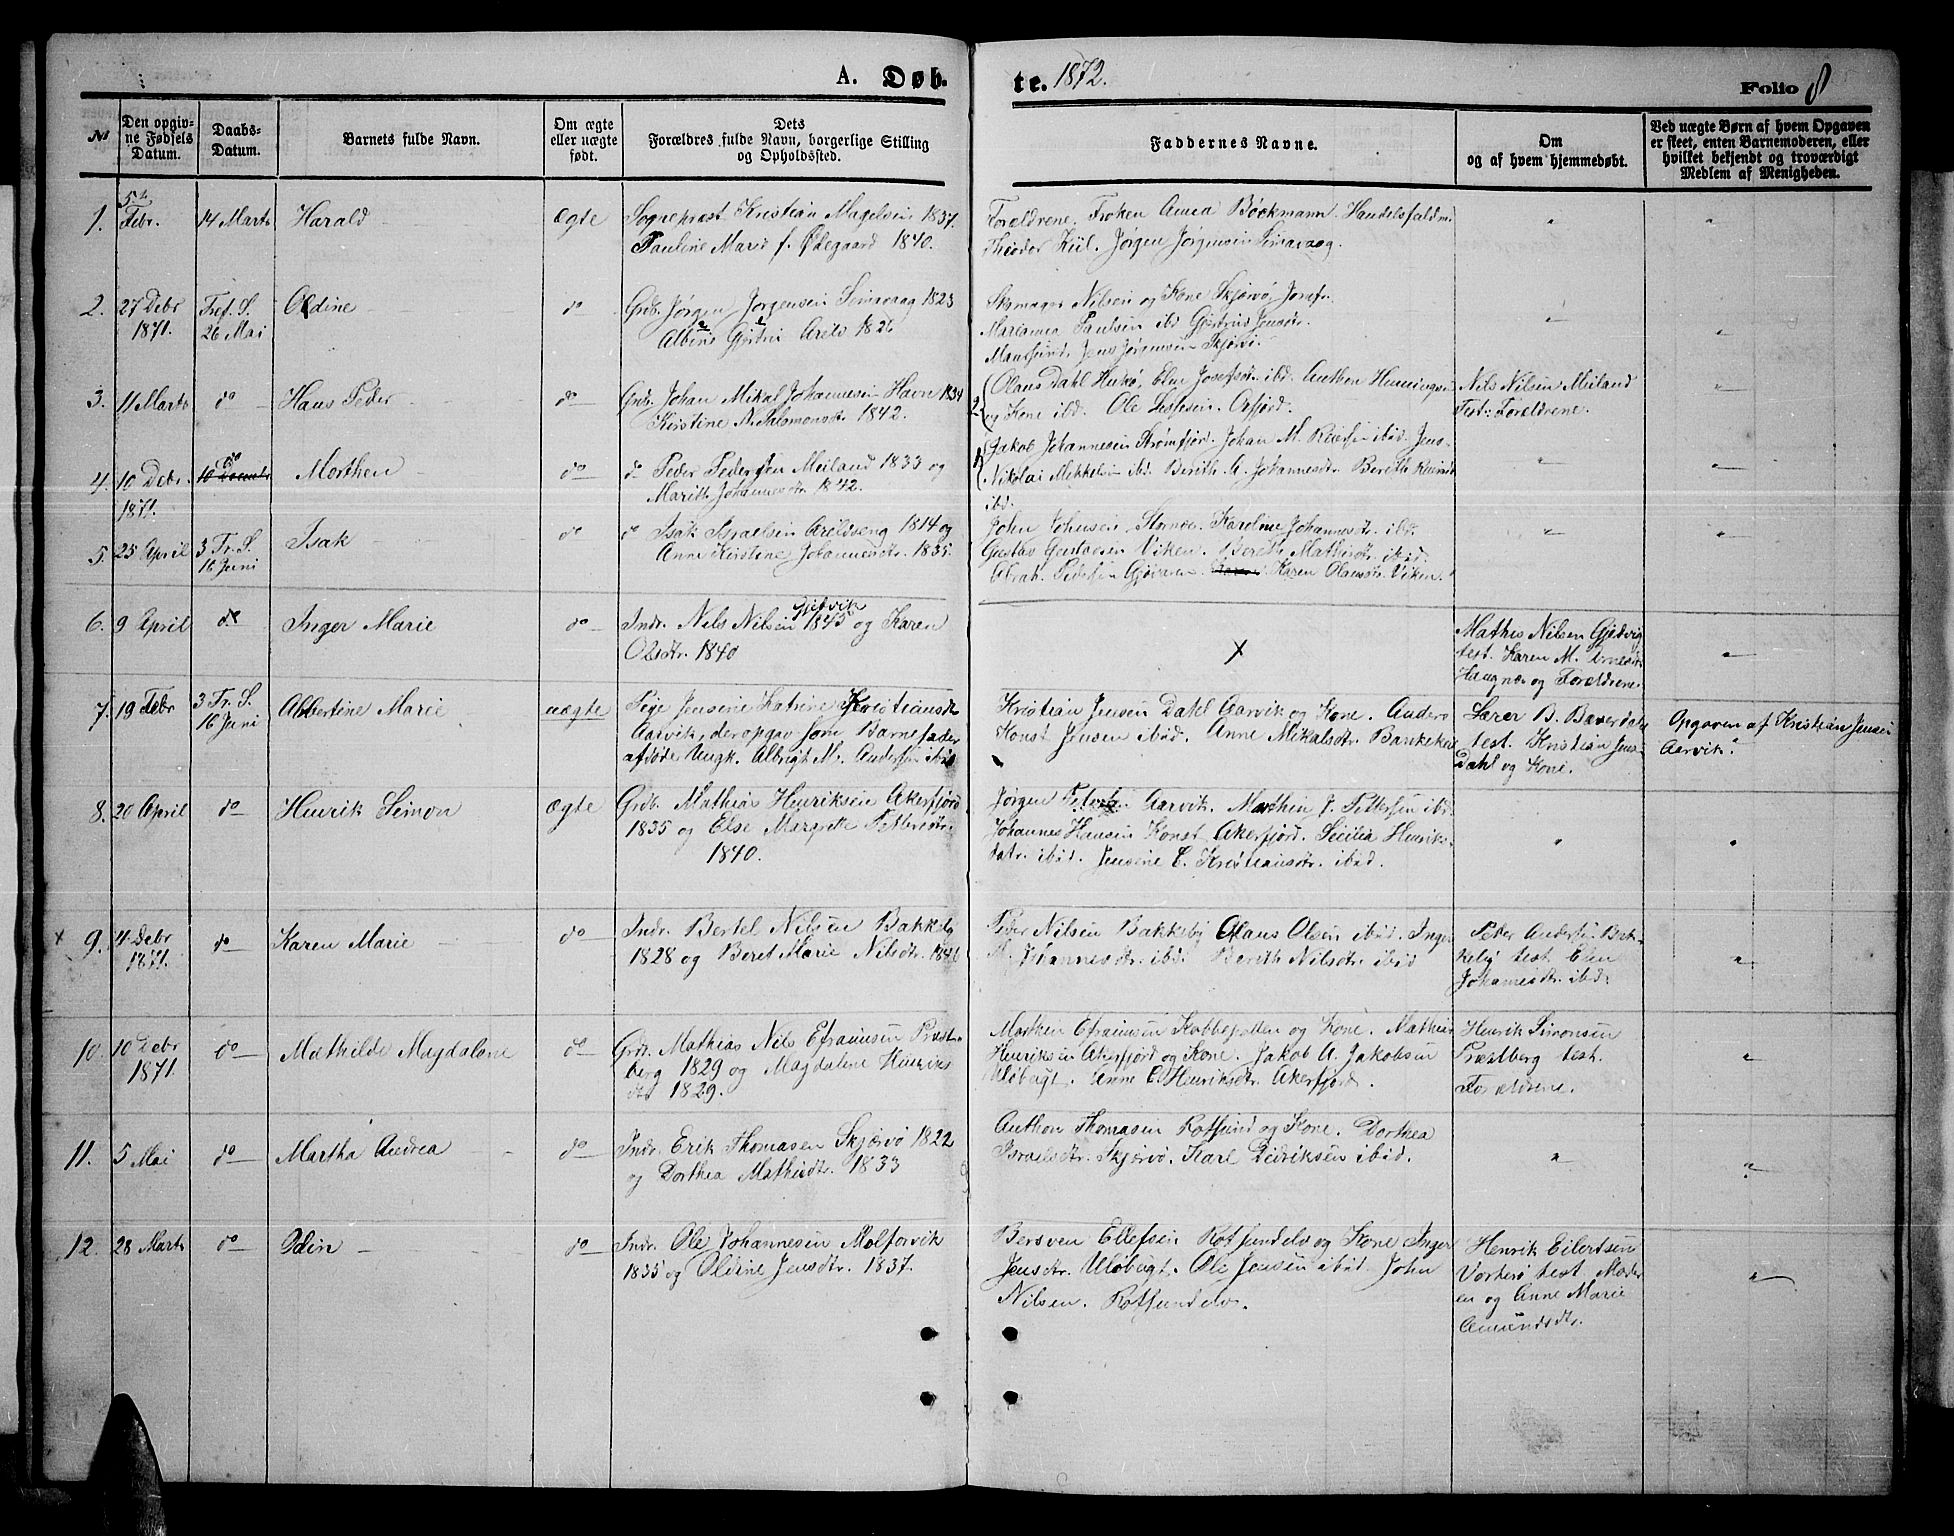 A. Døb-
te. 1872.
Folio 8
№
Den opgiv-
ne Fødsels
Datum.
Daabs-
Datum.
Barnets fulde Navn.
Om ægte
eller uægte
født.
Dets
Forældres fulde Navn, borgerlige Stilling
og Opholdssted.
Faddernes Navne.
Om
og af hvem hjemmedøbt.
Ved uægte Børn af hvem Opgaven
er skeet, enten Barnemoderen, eller
hvilket bekjendt og troværdigt
Medlem af Menigheden.
1.
5te
Febr.
14 Marts
Harald
Ægte
Sogneprest Kristian Magelsen 1837.
Pauline Marie f. Ødegaard 1840.
Forældrene. Frøken Anna Bøckmann. Handelsfuldm.
Theodor Kiil. Jørgen Jørgensen Simavaag.
2.
27 Debr
1871.
Tref. S.
26 Mai
Oldine
do
Grdb. Jørgen Jørgensen Simavaag 1823
Albine Gjertri Arets 1826
Skomager Nilsen og Kone Skjervø, Josefn.
Marianna Paulsen ibd Gjertrud Jensdtr.
Mausund. Jens Jørgensen Skjervø.
3.
11 Marts
do
Hans Peder
do
Grdr. Johan Mikal Johannesen Havn 1834
Kristine N. Salomonsdtr. 1842.
2.
Olaus Dahl Hukø, Elen Josefsdtr. ibd. Anthon Henningsen
og Kone ibd. Ole Leslesen. Oxfjord.
Nils Nilsen Meiland
Test: Forældrene.
4.
10 Debr.
1871.
do
Morthen
do
do Peder Pedersen Meiland 1833 og
Marith Johannesdtr. 1842.
1.
Jakob Johannesen Strømfjord. Johan M. Reiersen ibid. Jens
Nikolai Mikkelsen ibd. Berith M. Johannesdtr. Berith
ibd.
5.
25 April
3 Fr. S.
16 Juni
Isak
do
do Isak Israelsen Arildseng 1814 og
Anne Kristine Johannesdtr. 1835.
John Johnsen, Stornæs. Karoline Johannesdtr. ibd.
Gustav Gustavsen Viken. Berith Mathisdtr. ibid.
Abrah. Pedersen Gjøvaren. Karen Olausdtr. Viken.
6.
9 April
do
Inger Marie
do
Gjødvik
Indr. Nils Nilsen 1845 og Karen
Olsdtr. 1840
X
Mathis Nilsen Gjødvig
test. Karen M. Arnesdtr
Haugnæs og Forældrene.
7.
19 Febr
3 Fr. S.
16 Juni
Albertine Marie
uægte
Pige Jensine Katrine Kristiansdtr.
Aarvik, der opgav som Barnefader
afdøde Ungk. Albrigt M. Andersen ibid.
Kristian Jensen Dahl Aarvik og Kone. Anders
Konst Jensen ibid. Anne Mikalsdtr. Bankekeila
Lærer B. Baverdahl
test. Kristian Jens.
Dahl og Kone.
Opgaven af Kristian Jensen
Aarvik.
8.
20 April
do
Henrik Simon
Ægte
Grdb. Mathias Henriksen Akerfjord
1835 og Else Margrethe Pettersdtr.
1840.
Jørgen Peters Aarvik. Morthen J. Pettersen ibd.
Johannes Hansen Konst Akerfjord. Secilia Henriks-
datr. ibid. Jensine C. Kristiansdtr. ibid.
x 9.
4 Debr
1871.
do
Karen Marie
do
Indr. Bertel Nilsen Bakkeby
1828 og Beret Marie Nilsdtr. 1846
Peder Nilsen Bakkeby Olaus Olsen ibid. Inger
A. Johannesdtr. ibid. Berith Nilsdtr. ibid
Peder Andersen Bak-
keby test Elen
Johannesdtr. ibid.
10.
10 Debr
1871.
do
Mathilde Magdalene
do
Grdr. Mathias Nils Efraimsen Præst-
berg 1829 og Magdalene Henriks
dtr 1829.
Morthen Efraimsen Kobbepollen og Kone. Mathias
Henriksen Akerfjord og Kone. Jakob A. Jakobsen
Uløbugt. Anne E. Henriksdtr. Akerfjord.
Henrik Simonsen
Præstberg test.
Forældrene.
11.
5 Mai
do
Martha Andrea
do
Indr. Erik Thomasen Skjervø 1822
og Dorthea Mathisdtr. 1833
Anthon Thomasen Rotsund og Kone. Dorthea
Israelsdtr. Skjervø. Karl Didriksen ibid.
12.
28 Marts
do
Odin
do
Indr. Ole Johannesen Molforvik
1835 og Oldine Jensdtr. 1837.
Bersven Ellefsen Rotsundelv og Kone Inger
Jensdtr. Uløbugt. Ole Jensen ibid. John
Nilsen. Rotsundelv.
Henrik Eilertsen
Vorterø test. Moder
en og Anne Marie
Amundsdtr.